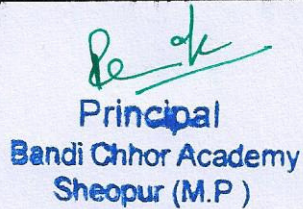 Principal
Bandi Chhor Academy
Sheopur (M.P )